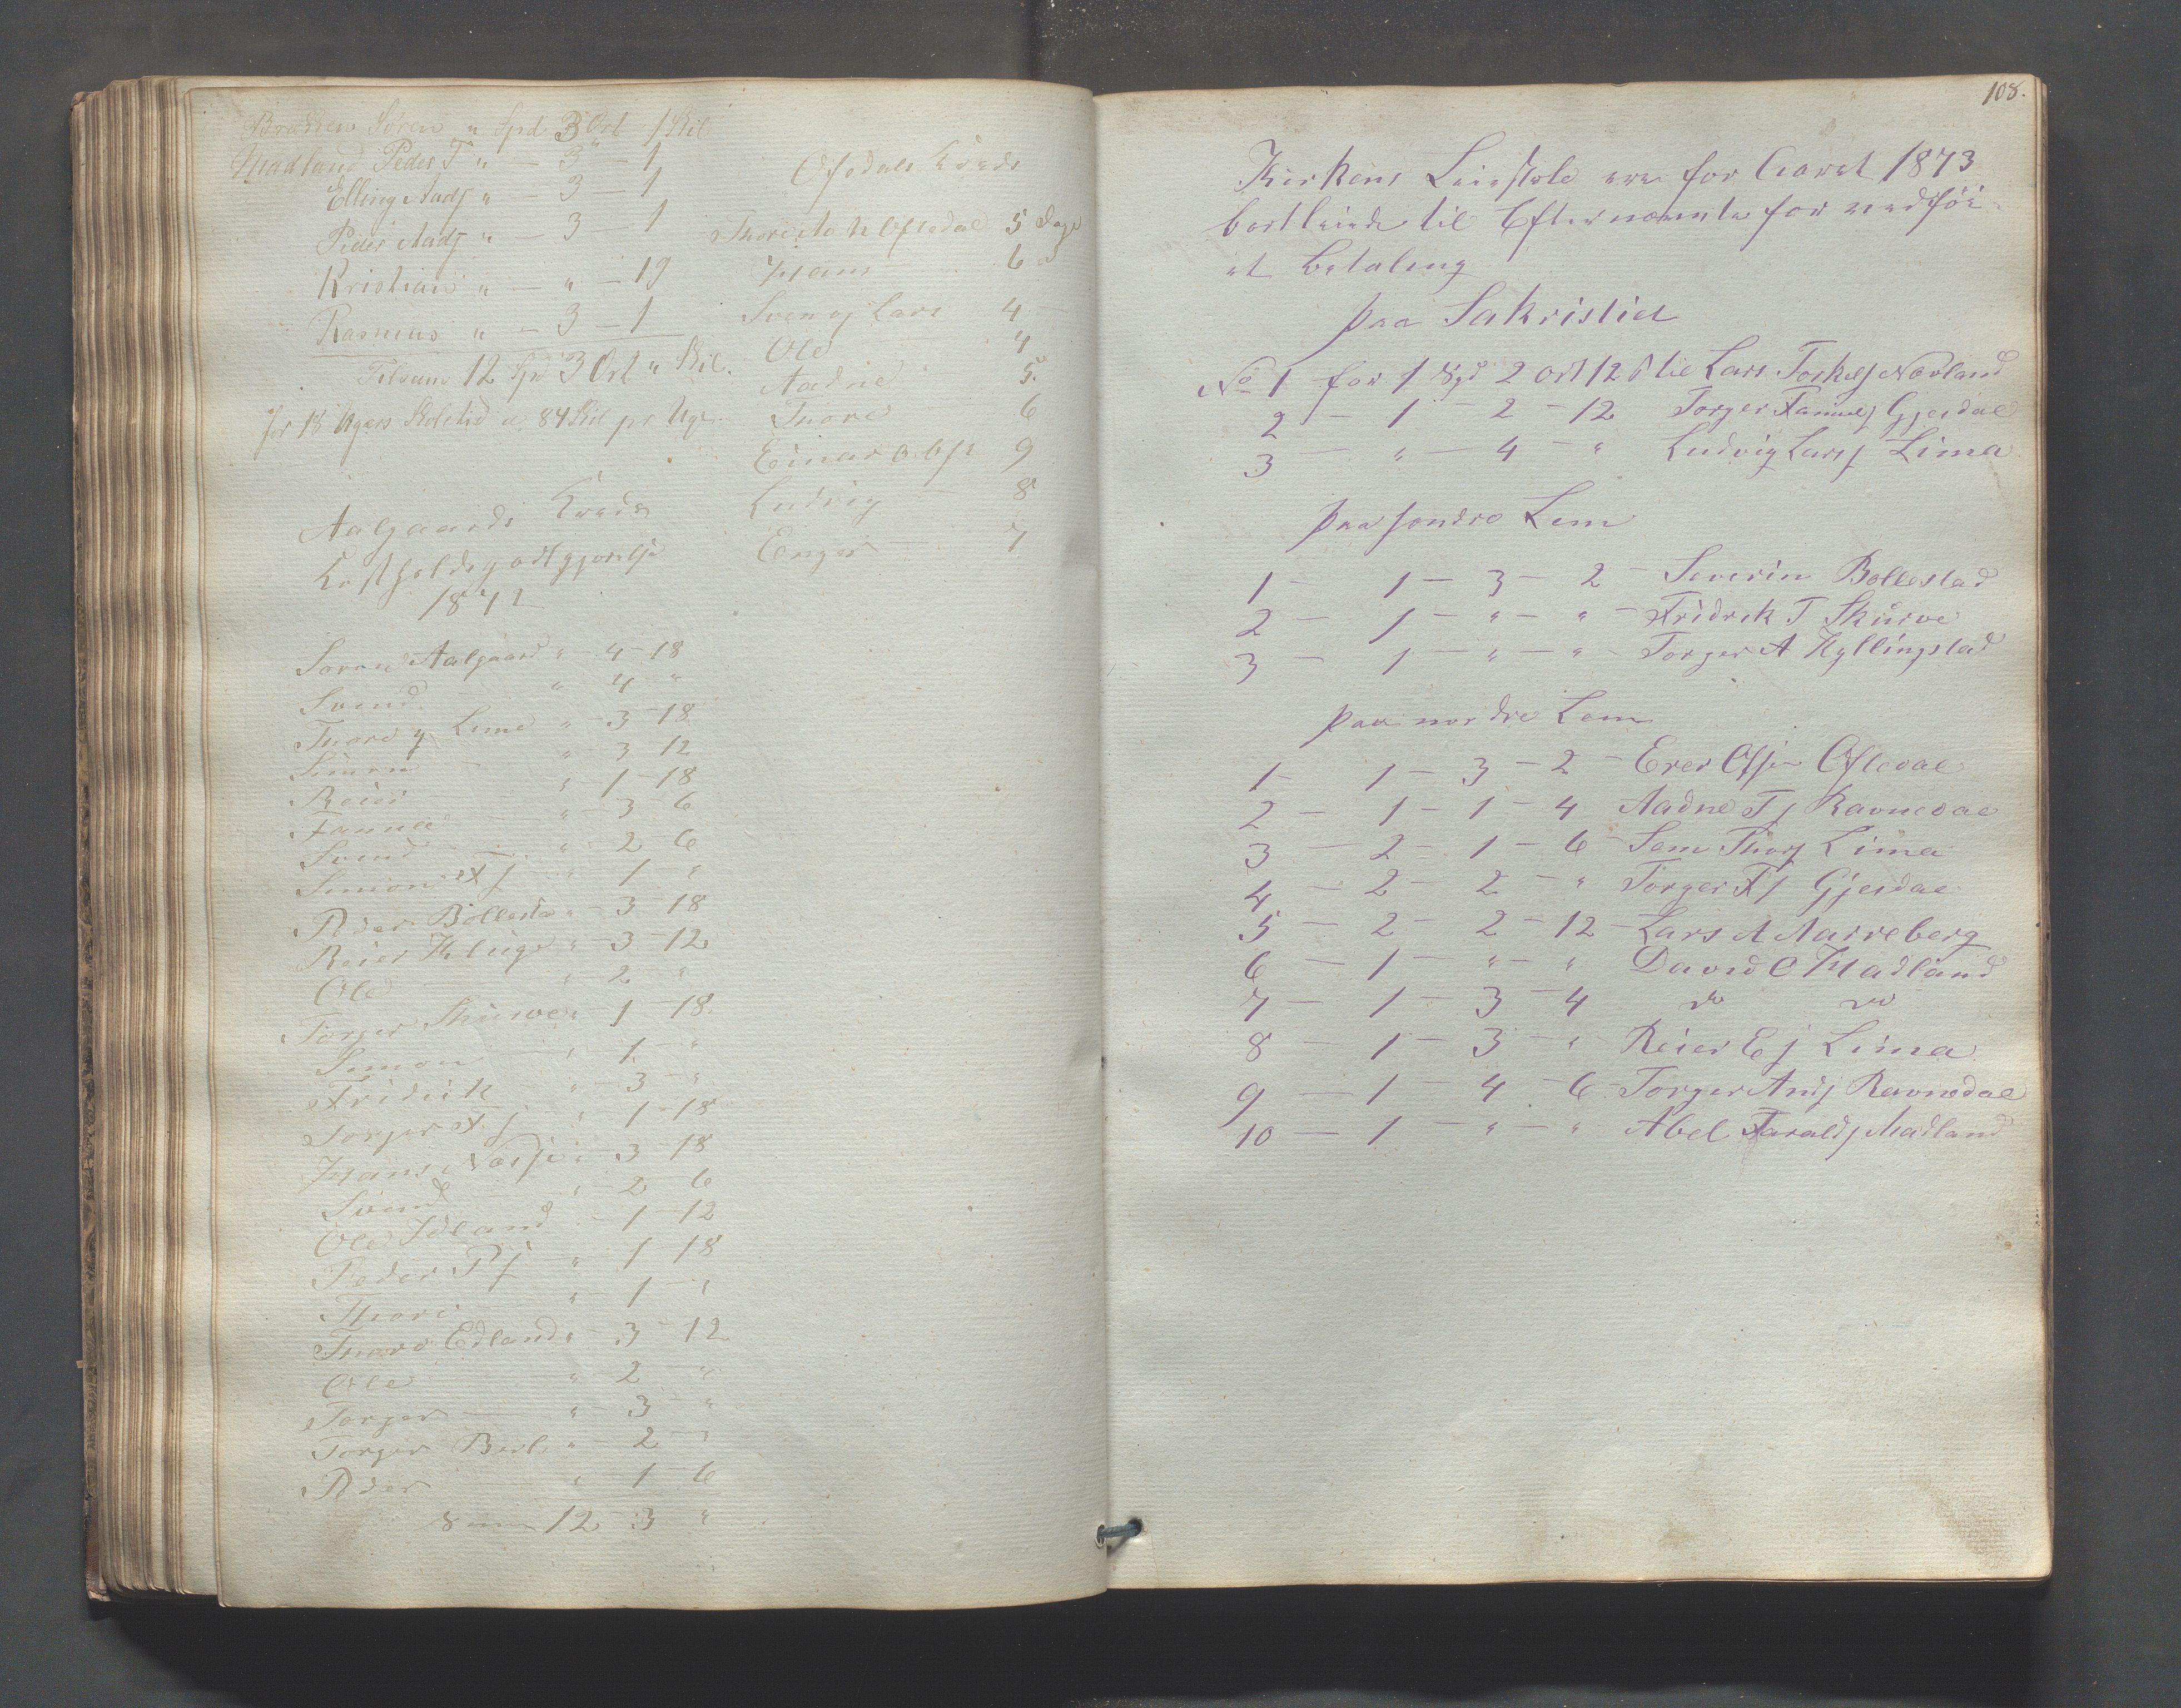 Braaten Søren " Spd 3 Ort 1 Skil
Madland Peder T " — 3 — 1
Elling Aadsj " — 3 — 1
Peder Aadsj " — 3 — 1
Kristian " — " — 19
Rasmus " — 3 — 1
Tilsam 12 Spd 3 Ort " Skil.
for 18 Ugers Skoletid a 84 Skil pr Uge
Aalgaards Kreds
Kostholdsgodtgjørelse
1872
Søren Aalgaard " 4 — 18
Svend " 4 "
Thore Lima " — 3 — 18
Simon — " 3 12
Reier " — 1 — 18
Samuel — " — 3 — 6
Svend — " — 2 — 6
Simon — " 1 "
Peder Bollestad " — 3 — 18
Reier Kluge " — 3 — 12
Ole — " 2 "
Torger Skurve " — 1 — 18
Simon — " 1 "
Fridrik " — 3 — "
Torger — " 1 — 18
Hans " — 3 — 18
Svend — " — 2 — 6
Ole Idland " — 1 — 12
Peder P " — 1 — 18
Thore — " — 1 — "
Thore Edland " — 3 — 12
Ole " 2 "
Torger — " 3 "
Torger Berl " — 2 — "
Peder — " 1 — 6
Sum 12 — 3 "
Ofsdals Kreds
Thore Ofstedal 5 Dage
Hans 6 d
Sven og Lars 4 —
Ole 4
Aadne 5.
Thore 6
Einar O. Ofs 9
Ludvig — 8
Enger — 7
108.
Kirkens Leiestole ere for Aaret 1873
bortleiede til Efternævnte for vedføi-
et Betaling
paa Sakristiet
No 1 for 1 Spd 2 Ort 12 s til Lars Torkelsj Norland
2 — 1 — 2 — 12 Torger Samuelsj Gjesdal
3 — " — 4 — " Ludvig Larsj Lima
paa søndre Lem
1 — 1 — 3 — 2 — Severin Bollestad
2 — 1 — " — " — Fridrik T Skurve
3 — 1 — " — " — Torger A Kyllingstad
paa nordre Lem
1 — 1 — 3 — 2 — Ofstedal
2 — 1 — 1 — 4 Aadne Tj Ravnedal
3 — 2 — 1 — 6 — Sem Thorsj Lima
4 — 2 — 2 — " Torger Fj Gjesdal
5 — 2 — 2 — 12 — Lars A Aarreberg
6 — 1 — " — " David O Madland
7 — 1 — 3 — 4 do do
8 — 1 — 3 — " Reier Ej Lima
9 — 1 — 4 — 6 — Torger Andsj Ravnedal
10 — 1 — " — " Abel Taraldsj Madland